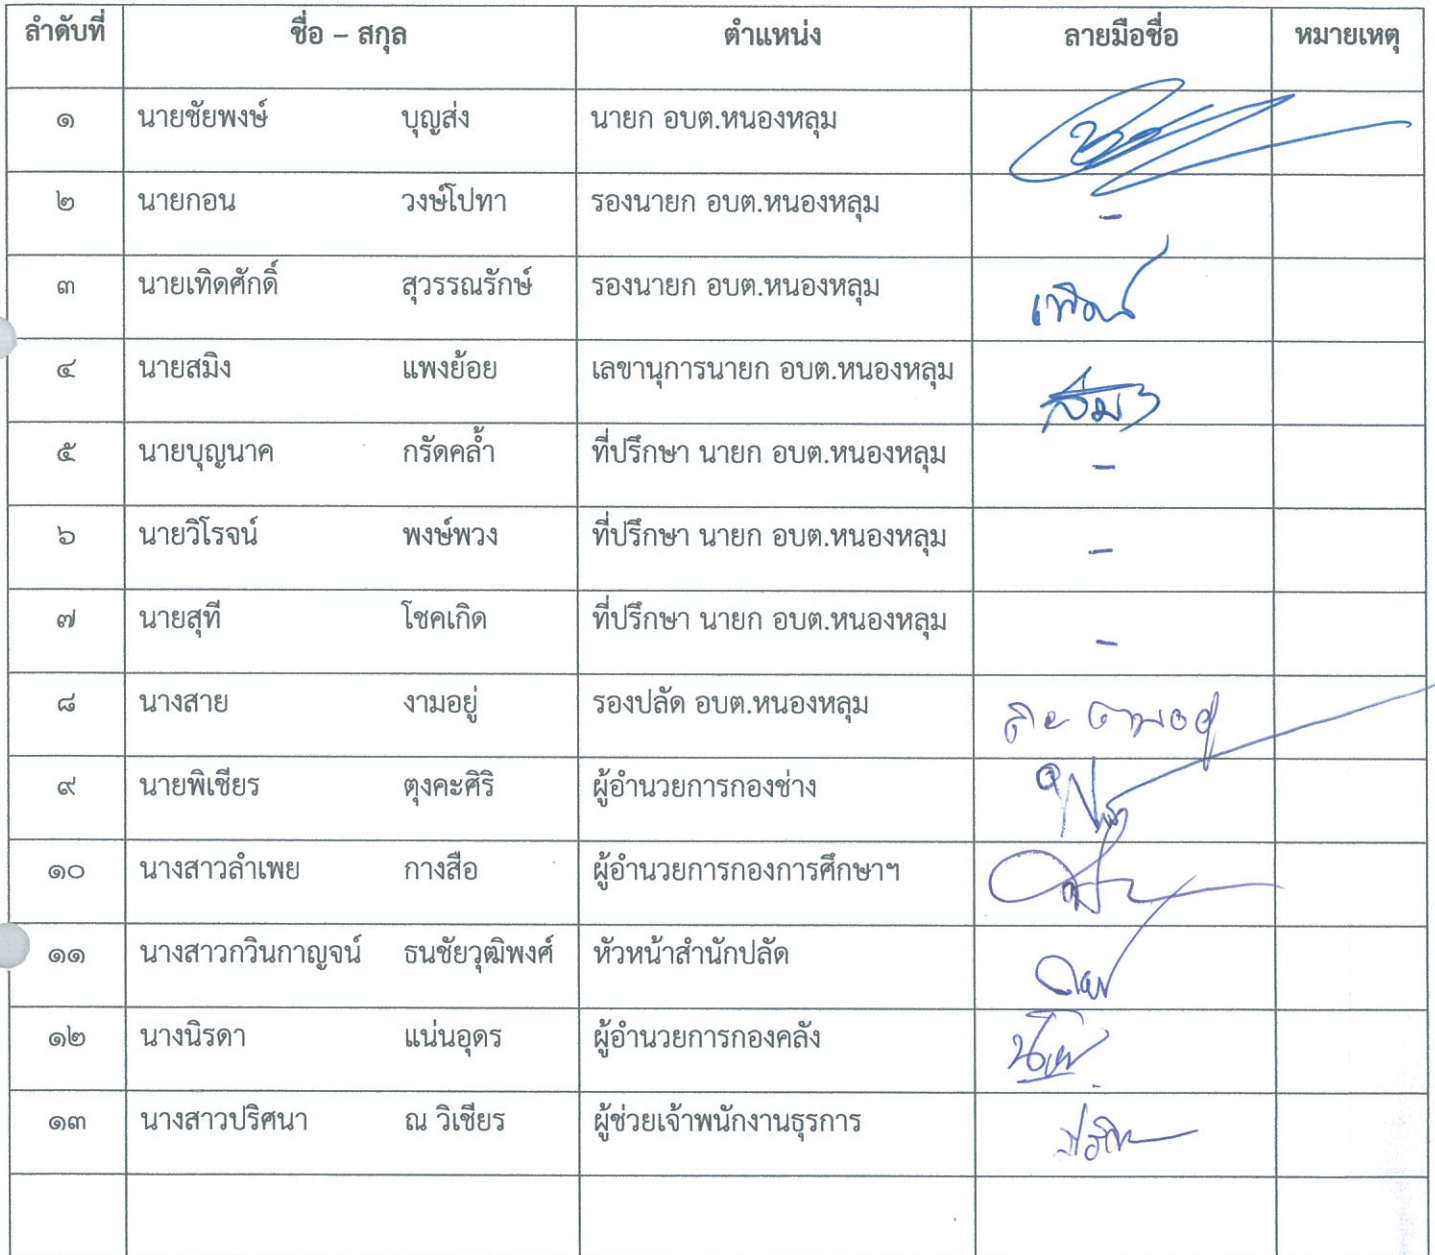 ลำดับที่ ชื่อ – สกุล ตำแหน่ง ลายมือชื่อ หมายเหตุ
๑ นายชัยพงษ์ บุญส่ง นายก อบต.หนองหลุม
๒ นายกอน วงษ์โปทา รองนายก อบต.หนองหลุม -
๓ นายเทิดศักดิ์ สุวรรณรักษ์ รองนายก อบต.หนองหลุม
๔ นายสมิง แพงย้อย เลขานุการนายก อบต.หนองหลุม
๕ นายบุญนาค กรัดคล้ำ ที่ปรึกษา นายก อบต.หนองหลุม -
๖ นายวิโรจน์ พงษ์พวง ที่ปรึกษา นายก อบต.หนองหลุม -
๗ นายสุที โชคเกิด ที่ปรึกษา นายก อบต.หนองหลุม -
๘ นางสาย งามอยู่ รองปลัด อบต.หนองหลุม
๙ นายพิเชียร ตุงคะศิริ ผู้อำนวยการกองช่าง
๑๐ นางสาวลำเพย กางสือ ผู้อำนวยการกองการศึกษาฯ
๑๑ นางสาวกวินกาญจน์ ธนชัยวุฒิพงศ์ หัวหน้าสำนักปลัด
๑๒ นางนิรดา แน่นอุดร ผู้อำนวยการกองคลัง
๑๓ นางสาวปริศนา ณ วิเชียร ผู้ช่วยเจ้าพนักงานธุรการ